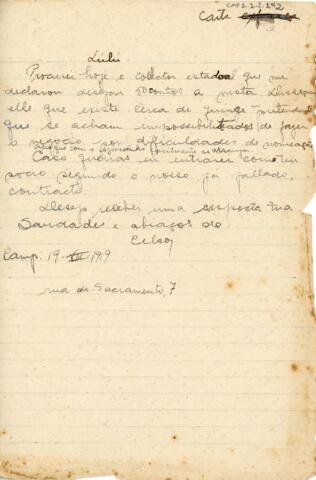 CMP 2.1.2.242
Carta
Lulú
Procurei hoje o colector estadoal que me
declarou desejar 50 contos a vista. Disse-me
elle que existe cerca de quinze pretendentes
que se acham impossibilitados de fazer
o negocio por difficuldades de nomeação
com o facilmente se arranja.
Caso queiras eu entrarei como teu
socio segundo o nosso já fallado,
contracto.
Desejo receber uma resposta tua
Saudades e abraços do
Celso
Camp. 19-VII-1919
rua de Sacramento, 7